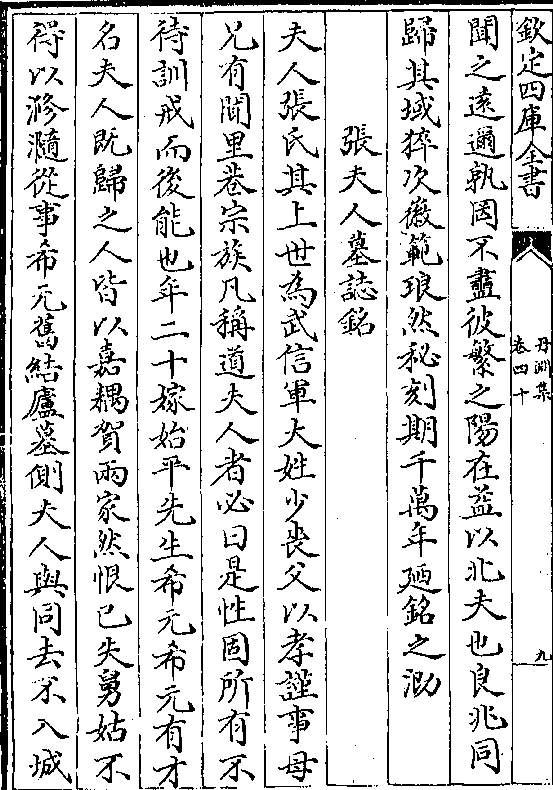 欽定四庫全書
丹淵集
卷四十
九
聞之遠邇孰罔不盡彼繁之陽在益以北夫也良兆同
歸其域猝次徽範琅然秘刻期千萬年廼銘之泐
張夫人墓誌銘
夫人張氏其上世為武信軍大姓少喪父以孝謹事母
兄有閭里巷宗族凡稱道夫人者必曰是性固所有不
待訓戒而後能也年二十嫁始平先生希元希元有才
名夫人既歸之人皆以嘉耦賀兩家然恨已失舅姑不
得以滫瀡從事希元舊結廬墓側夫人與同去不入城